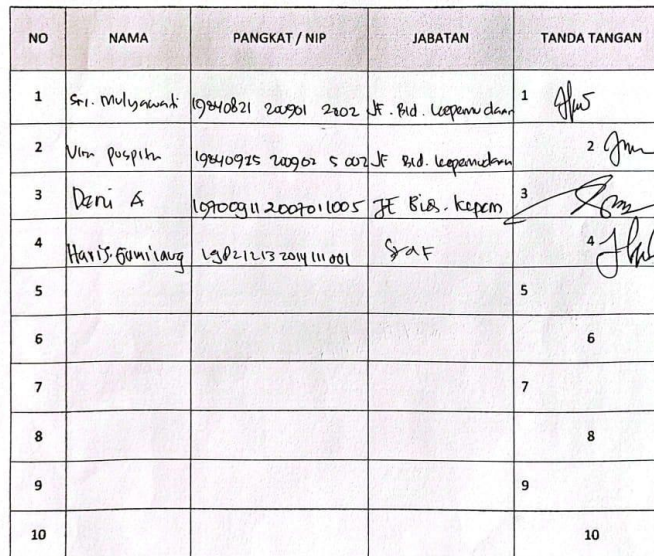 NO NAMA PANGKAT / NIP JABATAN TANDA TANGAN
1 Sri. Mulyawati 19840821 200901 2002 JF. Bid. kepemudaan 1
2 Vira puspita 19840925 200902 5 002 JF Bid. kepemudaan 2
3 Deni A 197009112007011005 JF Bid. kepem 3
4 Haris. Gumilang 198212132014111001 Staf 4
5 5
6 6
7 7
8 8
9 9
10 10